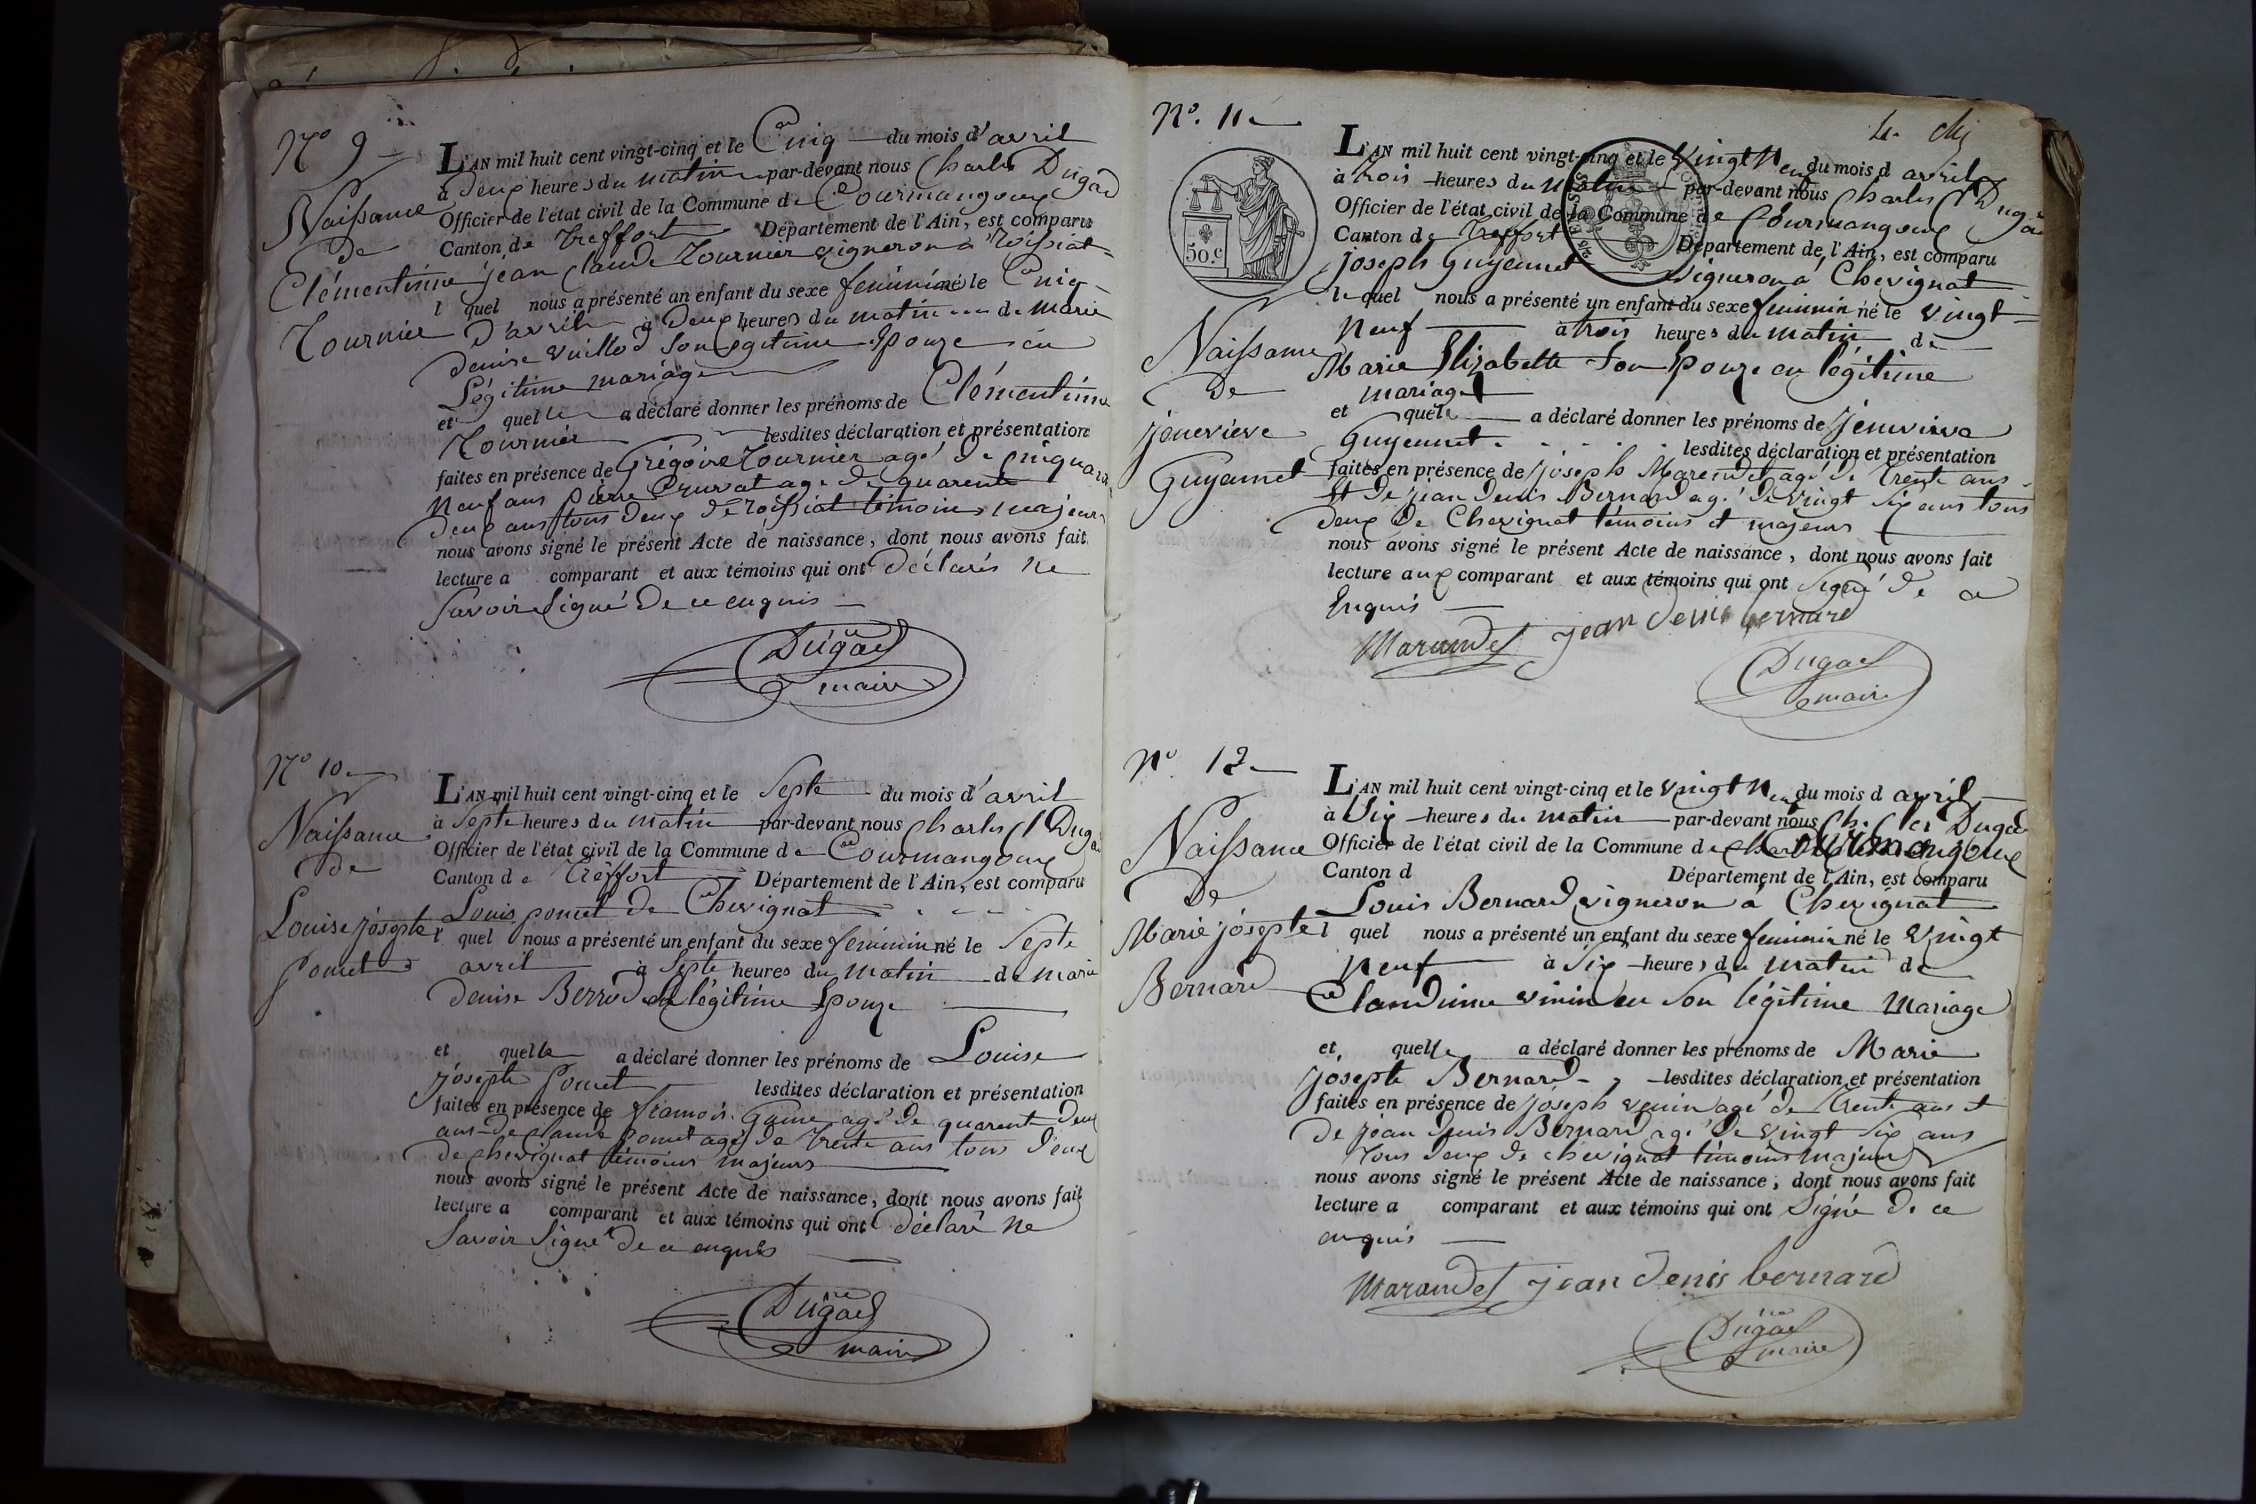 N° 9
Naissance
de
Clémentinne
Tournier
L'AN mil huit cent vingt-cinq et le Cinq du mois d'avril
à deux heures du matin par-devant nous Charles Dugad
Officier de l'état civil de la Commune de Courmangoux
Canton de Treffort Département de l'Ain, est comparu
jean claude Tournier vigneron à Roissiat
l quel nous a présenté un enfant du sexe féminin né le Cinq
d'avril à deux heures du matin de marie
denise vuillod son Légitime Epouze en
Légitime mariage
et quelle a déclaré donner les prénoms de Clémentinne
Tournier lesdites déclaration et présentation
faites en présence de Grégoire Tournier agé de Cinquante
Neuf ans pierre Pruvat age de quarente
deux ans tous deux de roissiat témoins majeurs
nous avons signé le présent Acte de naissance, dont nous avons fait
lecture a comparant et aux témoins qui ont déclarés ne
Savoir Signé de ce enquis
Dugad
maire
N° 10
Naissance
de
Louise josephte
Pomet
L'AN mil huit cent vingt-cinq et le Septe du mois d'avril
à Septe heures du matin par-devant nous Charles Cl Dugad
Officier de l'état civil de la Commune de Courmangoux
Canton de Treffort Département de l'Ain, est comparu
Louis pomet de Chevignat
l quel nous a présenté un enfant du sexe féminin né le Septe
avril à Septe heures du matin de marie
denise Berrod sa légitime Epouze
et quelle a déclaré donner les prénoms de Louise
josephte Pomet lesdites déclaration et présentation
faites en présence de framois agé de quarent deux
ans de claude pomet agé de Trente ans tous deux
de chevignat témoins majeurs
nous avons signé le présent Acte de naissance, dont nous avons fait
lecture a comparant et aux témoins qui ont déclaré ne
Savoir Signé de ce enquis
Dugad
maire
N°. 11
4.
50.c
Naissance
de
jenevieve
Guyennet
L'AN mil huit cent vingt-cinq et le vingt Neuf du mois d avril
à trois heures du matin par-devant nous Charles Cl Dugad
Officier de l'état civil de la Commune de Courmangoux
Canton de Treffort Département de l'Ain, est comparu
joseph Guyennet vigneron à Chevignat
lequel nous a présenté un enfant du sexe feminin né le vingt
Neuf à trois heures du matin de
Marie Elizabette Son Epouze en légitime
mariage
et quelle a déclaré donner les prénoms de jenevieve
Guyennet lesdites déclaration et présentation
faites en présence de joseph Marendet agé de Trente ans
Et de jean denis Bernard agé de vingt Six ans tous
deux de Chevignat témoins et majeurs
nous avons signé le présent Acte de naissance, dont nous avons fait
lecture aux comparant et aux témoins qui ont signé de ce
Enquis
Marandet jean denis bernard
Dugad
maire
N° 12
Naissance
De
Marie josephte
Bernard
L'AN mil huit cent vingt-cinq et le vingt Neuf du mois d avril
à Six heures du matin par-devant nous Ch. Cl Dugad
Officier de l'état civil de la Commune de Courmangoux
Canton d Département de l'Ain, est comparu
Louis Bernard vigneron à Chevignat
l quel nous a présenté un enfant du sexe feminin né le vingt
Neuf à Six heures du matin de
Claudinne vinin en Son légitime Mariage
et quelle a déclaré donner les prénoms de Marie
josephte Bernard lesdites déclaration et présentation
faites en présence de joseph venin agé de Trente ans et
de jean denis Bernard agé de vingt Six ans
Tous deux de chevignat témoins majeurs
nous avons signé le présent Acte de naissance, dont nous avons fait
lecture a comparant et aux témoins qui ont Signé de ce
enquis
Marandet jean denis bernard
Dugad
maire